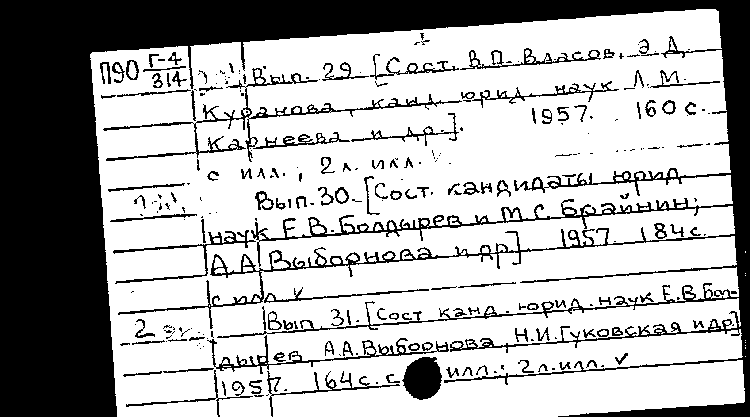 П90 Г-4/314 Вып. 29 [Сост. В.П. Власов, Э.Д.
Куранова, канд. юрид. наук Л.М.
Карнеева и др.]. 1957. 160 с.
с илл.; 2 л. илл. ✓
Вып. 30. [Сост. кандидаты юрид.
наук Е.В. Болдырев и М.С. Брайнин;
А.А. Выборнова и др]. 1957 184 с.
с илл ✓
2 Вып. 31. [Сост канд. юрид. наук Е.В. Бол-
дырев, А.А. Выборнова, Н.И. Гуковская и др]
1957. 164 с. с илл.; 2 л. илл. ✓